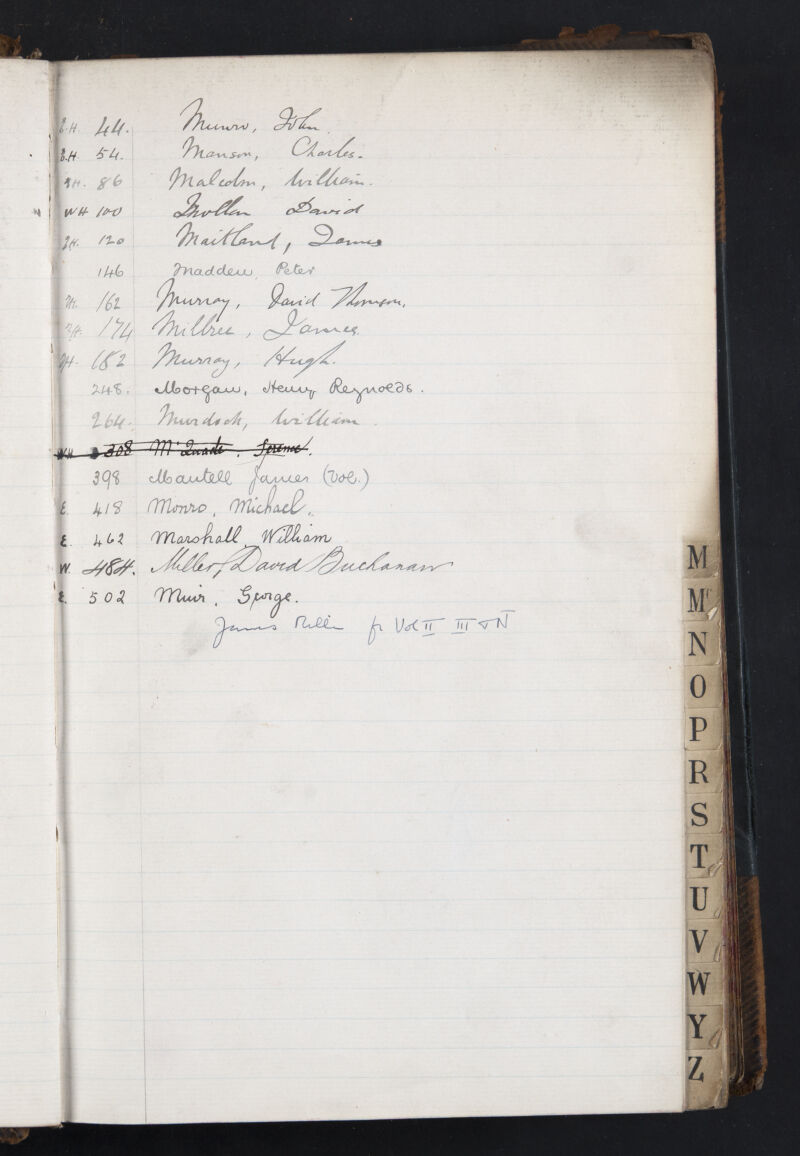 44. Munro, John.
B.H. 54. Manson, Charles.
H. 86 Malcolm, William.
WH 100 David
H. 120 Maitland, James
146 Madden, Peter
H. 162 Murray, David Thomson.
H. 174 James
H. 182 Murray, Hugh.
248. Morgan, Henry Reynolds.
264. Murdoch, William
WH 308 McQuade.
398 Mantell James (Vol.)
E. 418 Monro, Michael.
E. 462 Marshall, William
W. 484. Miller, David Buchanan
E. 502 Muir, George.
James Vol II III
M
Mc
N
O
P
R
S
T
U
V
W
Y
Z